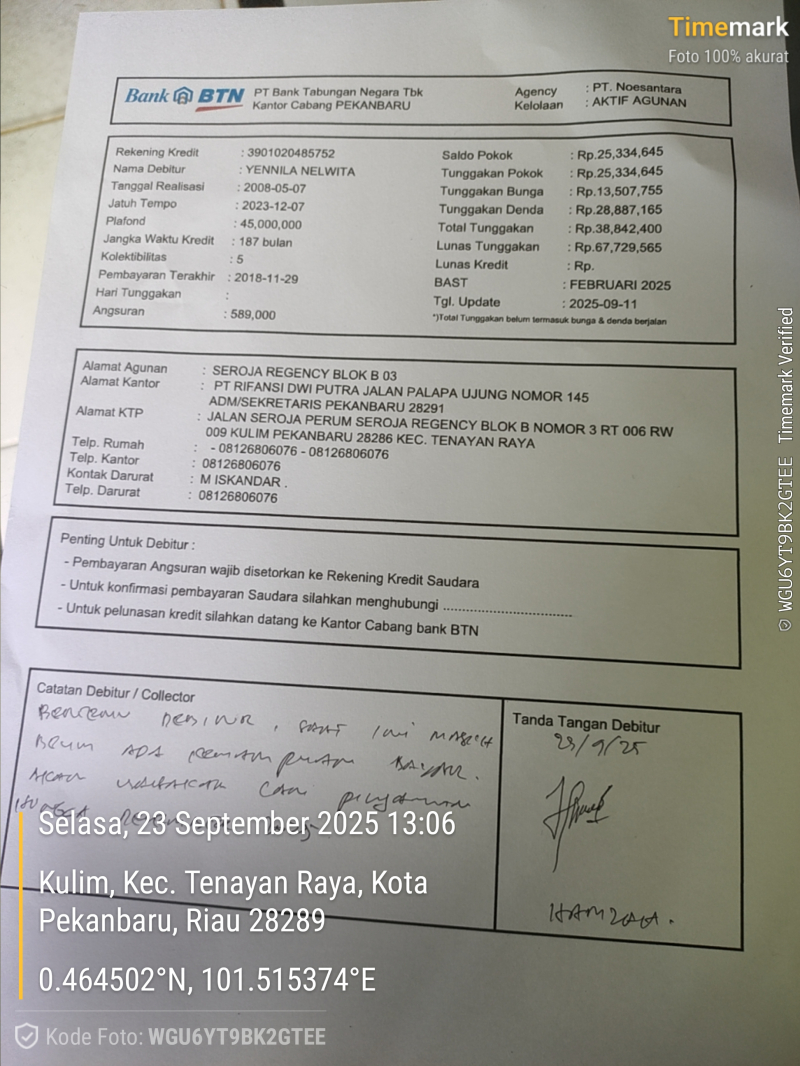 Timemark
Foto 100% akurat
Bank BTN
PT Bank Tabungan Negara Tbk
Kantor Cabang PEKANBARU
Agency : PT. Noesantara
Kelolaan : AKTIF AGUNAN
Rekening Kredit : 3901020485752
Nama Debitur : YENNILA NELWITA
Tanggal Realisasi : 2008-05-07
Jatuh Tempo : 2023-12-07
Plafond : 45,000,000
Jangka Waktu Kredit : 187 bulan
Kolektibilitas : 5
Pembayaran Terakhir : 2018-11-29
Hari Tunggakan :
Angsuran : 589,000
Saldo Pokok : Rp.25,334,645
Tunggakan Pokok : Rp.25,334,645
Tunggakan Bunga : Rp.13,507,755
Tunggakan Denda : Rp.28,887,165
Total Tunggakan : Rp.38,842,400
Lunas Tunggakan : Rp.67,729,565
Lunas Kredit : Rp.
BAST : FEBRUARI 2025
Tgl. Update : 2025-09-11
*)Total Tunggakan belum termasuk bunga & denda berjalan
Alamat Agunan : SEROJA REGENCY BLOK B 03
Alamat Kantor : PT RIFANSI DWI PUTRA JALAN PALAPA UJUNG NOMOR 145
ADM/SEKRETARIS PEKANBARU 28291
Alamat KTP : JALAN SEROJA PERUM SEROJA REGENCY BLOK B NOMOR 3 RT 006 RW
009 KULIM PEKANBARU 28286 KEC. TENAYAN RAYA
Telp. Rumah : - 08126806076 - 08126806076
Telp. Kantor : 08126806076
Kontak Darurat : M ISKANDAR .
Telp. Darurat : 08126806076
Penting Untuk Debitur :
- Pembayaran Angsuran wajib disetorkan ke Rekening Kredit Saudara
- Untuk konfirmasi pembayaran Saudara silahkan menghubungi ................................
- Untuk pelunasan kredit silahkan datang ke Kantor Cabang bank BTN
Catatan Debitur / Collector
DEBITUR, SAAT INI MASIH
BELUM ADA KEMAMPUAN BAYAR.
AKAN CARI
Tanda Tangan Debitur
23/9/25
HAMZAH.
Selasa, 23 September 2025 13:06
Kulim, Kec. Tenayan Raya, Kota
Pekanbaru, Riau 28289
0.464502°N, 101.515374°E
Kode Foto: WGU6YT9BK2GTEE
© WGU6YT9BK2GTEE Timemark Verified